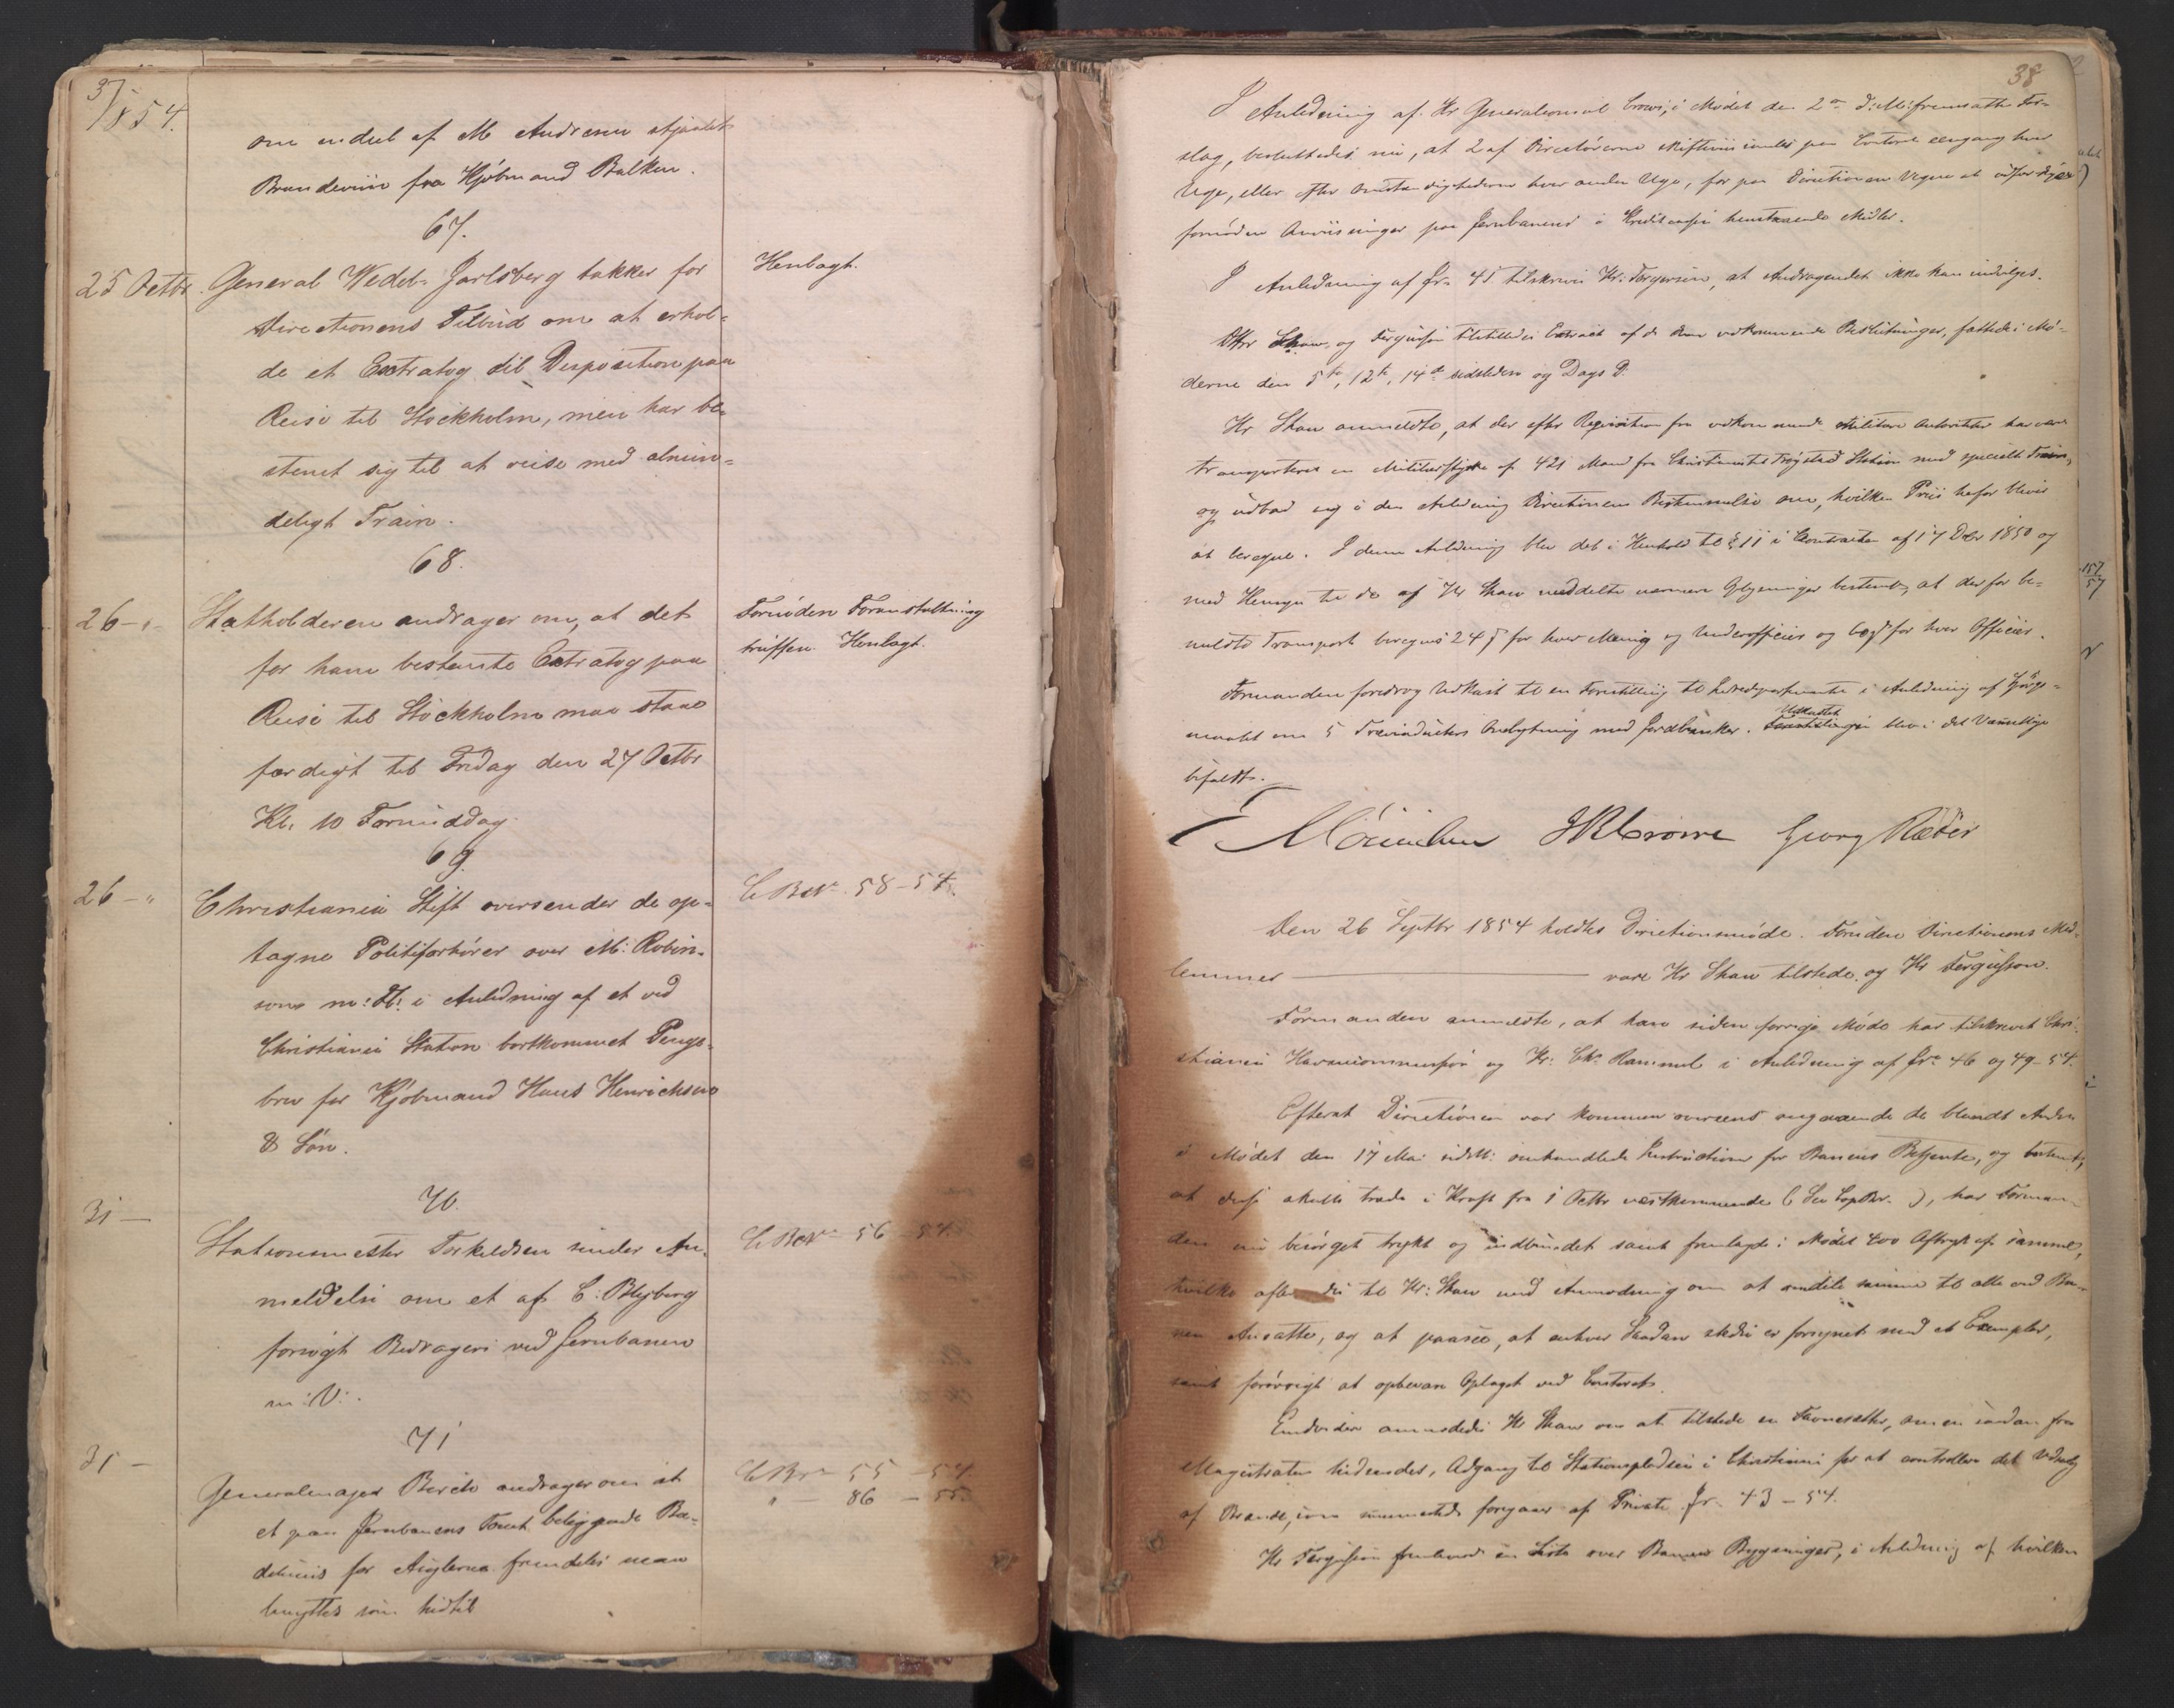 37
1854.
om endeel af M Andresen stjaalet
Brændeviin fra Kjøbmand Balken.
67.
25 Octbr. General Wedel-Jarlsberg takker for
Directionens Tilbud om at erhol-
de et Extratog til Disposition paa
Reise til Stockholm, men har be-
stemt sig til at reise med almin-
deligt Train.
Henlagt.
68.
26 - " - Statholderen andrager om, at det
for ham bestemte Extratog paa
Reise til Stockholm maa staae
færdigt til Fredag den 27 Octbr
Kl. 10 Formiddag.
Fornøden Foranstaltning
truffen. Henlagt.
69.
26 - " Christiania Stift oversender de op-
tagne Politiforhører over M: Robin-
son m: Fl: i Anledning af et ved
Christiania Station bortkommet Penge-
brev for Kjøbmand Hans Henrichsen
& Søn.
C. B. No 58 - 54.
70.
31 - Stationsmester Torkildsen sender An-
meldelse om et af C: Blyberg
forsøgt Bedrageri ved Jernbanen
m: V:.
C. B. No 56 - 54.
71
31 - Generalmajor Birch andrager om at
et paa Jernbanens Tomt beliggende Ba-
dehuus for Asylerne fremdeles maa
benyttes som hidtil
C. B. No 55 - 54.
" - 86 - 55.
38
I Anledning af Hr Generalconsul Crowe's i Mødet den 2den d: M: fremsatte For-
slag, besluttedes nu, at 2 af Directørerne skifteviis samles paa Contoret eengang hver
Uge, eller efter Omstændighederne hver anden Uge, for paa Directionens Vegne at udfærdige
fornødne Anviisninger paa Jernbanens i Creditcassen henstaaende Midler.
I Anledning af Jr. 45 tilskrives Hr. Torgersen, at Andragendet ikke kan indvilges.
Dhrr Shaw og Fergusson tilstilledes Extract af de dem vedkommende Beslutninger, fattede i Mø-
derne den 5te, 12te, 14de sidstleden og Dags D.
Hr Shaw anmeldte, at der efter Requisition fra vedkommende Militære Autoriteter har været
transporteret en Militairstyrke af 421 Mand fra Christiania til Trøgstad Station med specielt Train,
og udbad sig i den Anledning Directionens Bestemmelse om, hvilken Priis herfor bliver
at beregne. I denne Anledning blev det i Henhold til § 11 i Contracten af 17 Decbr 1850 og
med Hensyn til de af Hr Shaw meddelte nærmere Oplysninger bestemt, at der for be-
meldte Transport beregnes 24 ß for hver Menig og Underofficeer og 60 ß for hver Officier.
Formanden foredrog Udkast til en Forestilling til Indredepartementet i Anledning af Spørgs-
maalet om 5 Træviaducters Ombytning med Jordbanker. Udkastet blev i det Væsentlige
bifaldt.
Motzfeldt JRCrowe Georg Ræder
Den 26 Septbr 1854 holdtes Directionsmøde. Foruden Directionens Med-
lemmer vare Hr Shaw tilstede og Hr Fergusson.
Formanden anmeldte, at han siden forrige Møde har tilskrevet Chri-
stiania Havnecommission og Hr: Chr. Rammel i Anledning af Jr. 46 og 49-54.
Efterat Directionen var kommen overeens angaaende de blandt Andet
i Mødet den 17 Mai sidstl: omhandlede Instructioner for Banens Betjente, og bestemt,
at disse skulle træde i Kraft fra 1 Octbr næstkommende (See CopBr. ), har Forman-
den nu besørget trykt og indbundet samt fremlagde i Mødet 400 Aftryk af samme,
hvilke til Hr: Shaw med Anmodning om at uddele samme til alle ved Ba-
nen Ansatte, og at paasee, at enhver Saadan stedse er forsynet med et Exemplar,
samt forøvrigt at opbevare Oplaget ved Contoret.
Endvidere anmodedes Hr Shaw om at tilstede en Favnesætter, om en saadan fra
Magistraten hidsendes, Adgang til Stationspladsen i Christiania for at controllere det Udsalg
af Brænde, som sammesteds foregaaer af Private. Jr. 43 - 54.
Hr Fergusson fremlagde en Liste over Banens Bygninger, i Anledning af hvilken
157
57